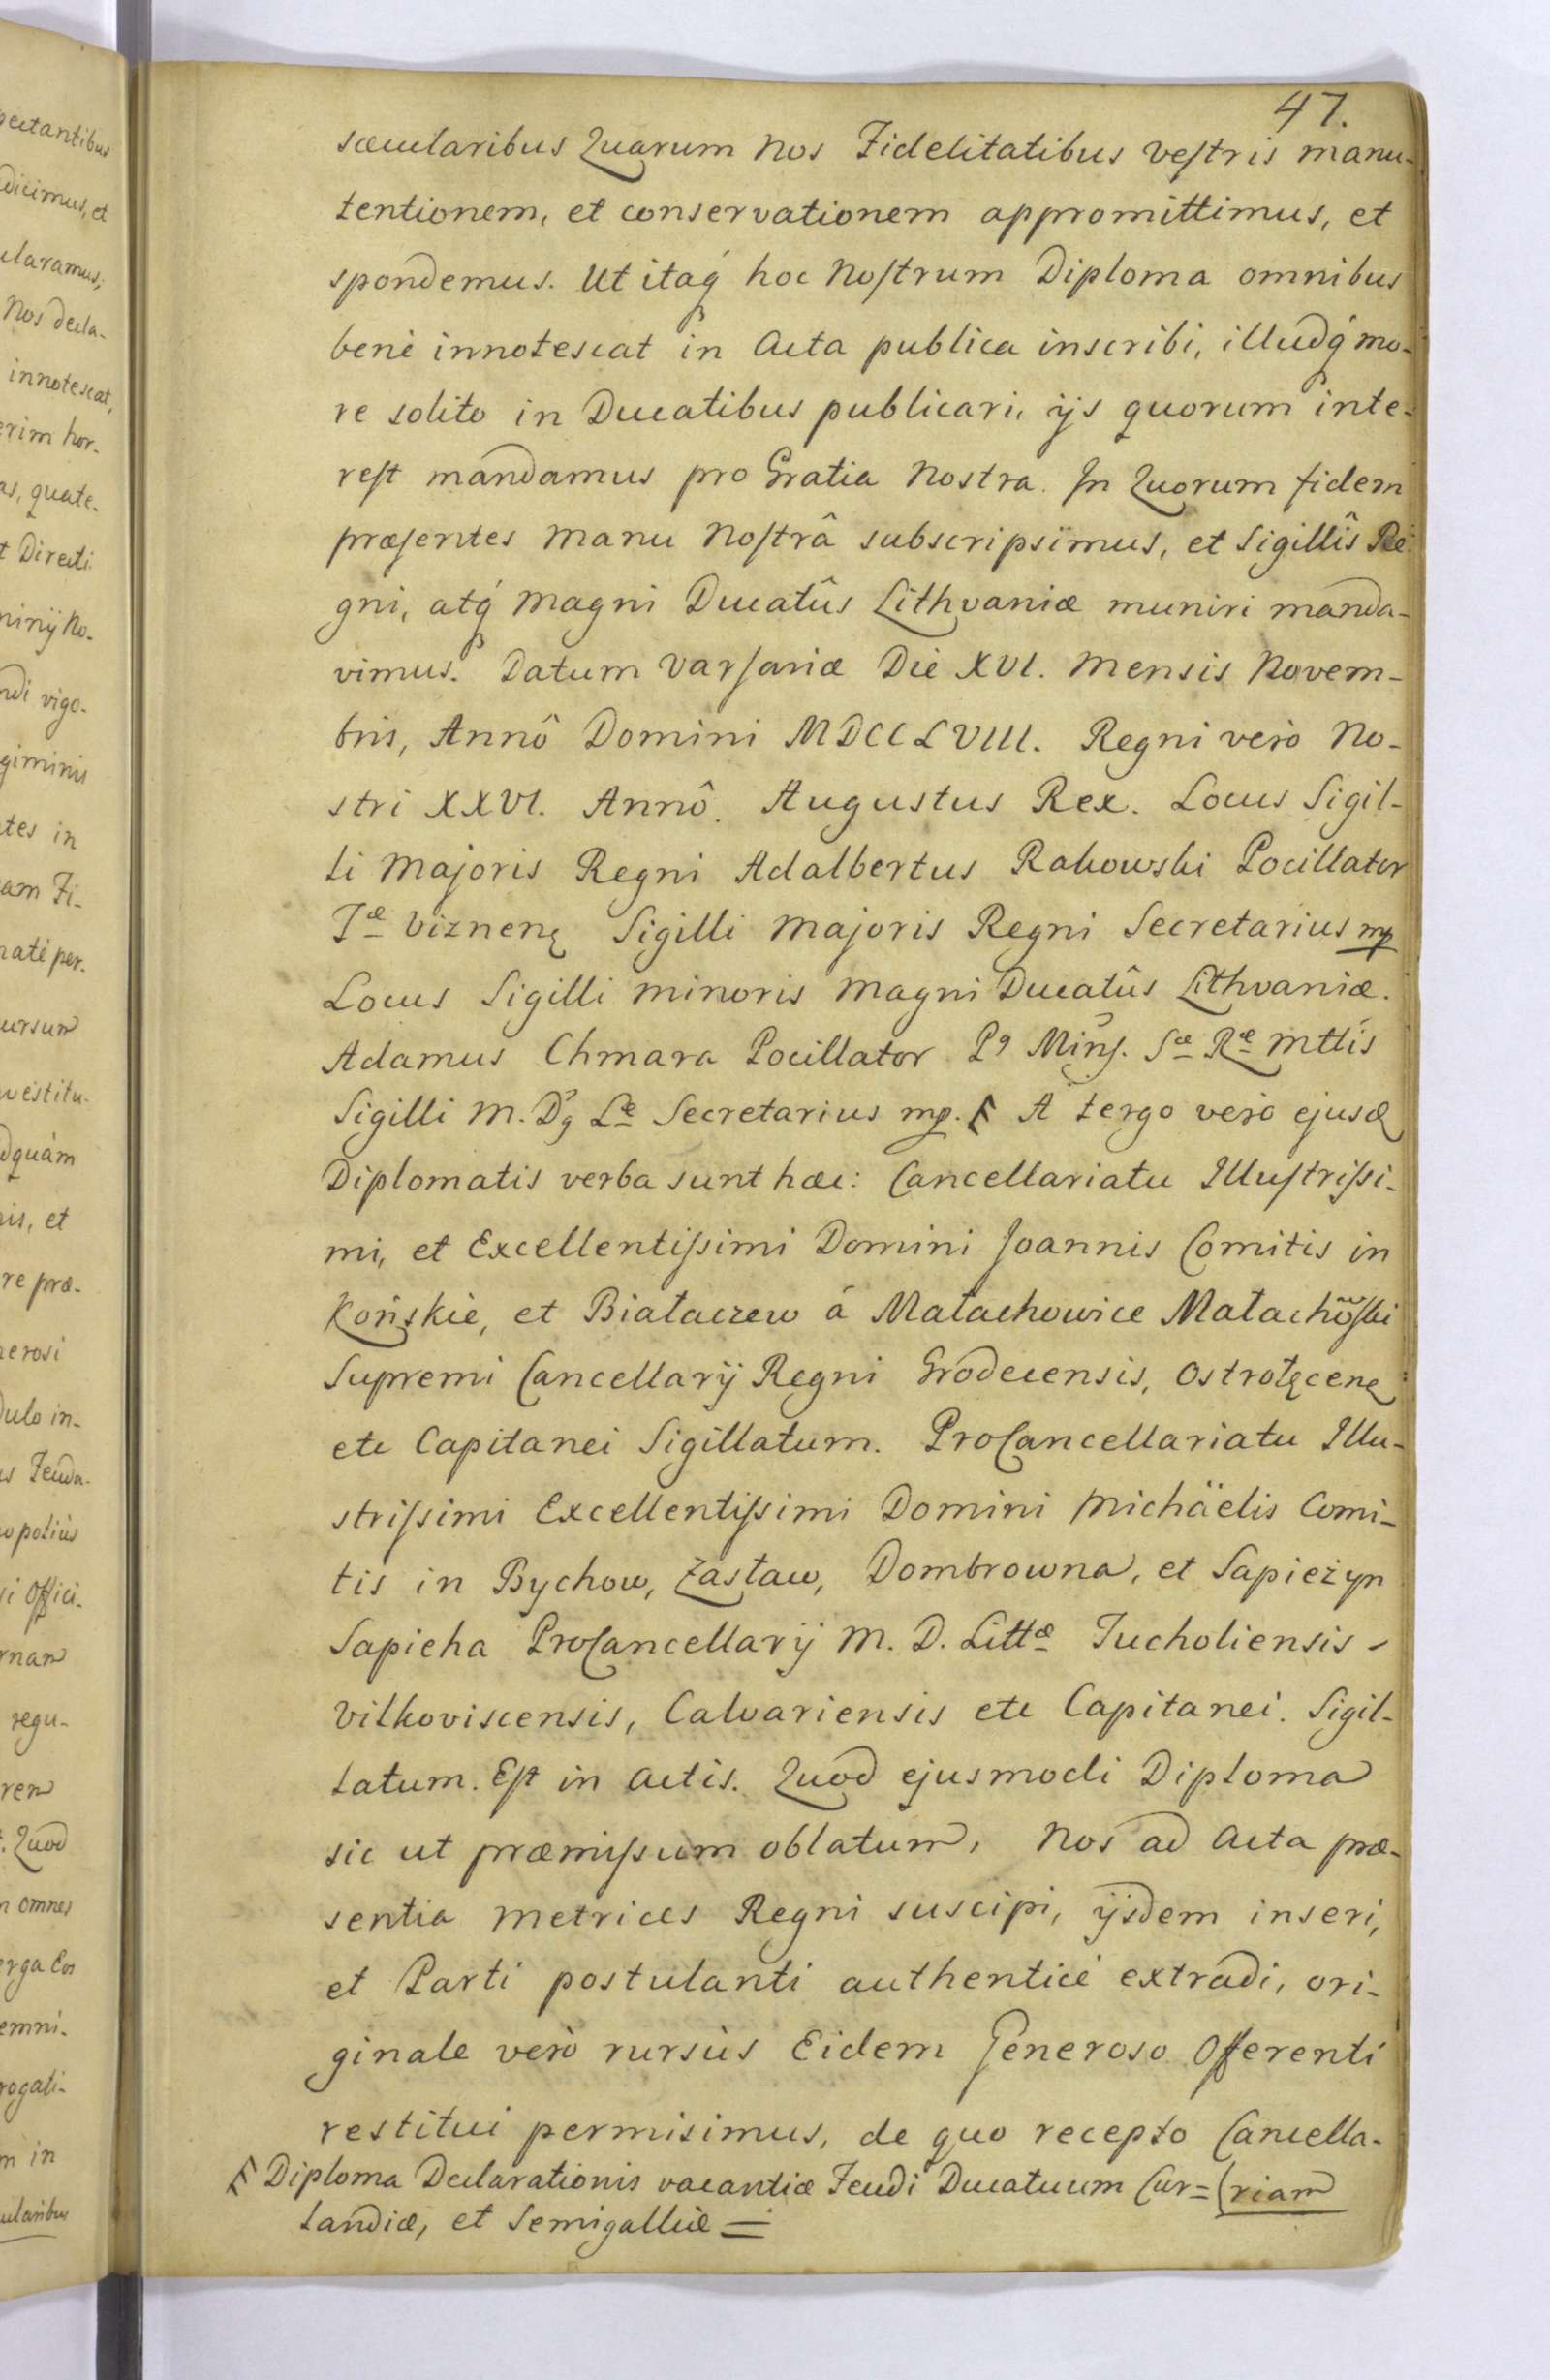 47.
sæcularibus Quarum Nos Fidelitatibus vestris manu-
tentionem, et conservationem appromittimus, et
spondemus. Ut itaq́ hoc Nostrum Diploma omnibus
benè innotescat in Acta publica inscribi, illudq́ mo-
re solito in Ducatibus publicari, ijs quorum inte-
rest mandamus pro Gratia Nostra. In Quorum fidem
præsentes Manu Nostrâ subscripsimus, et Sigillîs Re-
gni, atq́ Magni Ducatûs Lithvaniæ muniri manda-
vimus. Datum Varsaviæ Die XVI. Mensis Novem-
bris, Annô Domini MDCCLVIII. Regni verò No-
stri XXVI. Annô. Augustus Rex. Locus Sigil-
li Majoris Regni Adalbertus Rakowski Pocillator
Tæ Viznenę Sigilli Majoris Regni Secretarius mp
Locus Sigilli minoris Magni Ducatûs Lithvaniæ.
Adamus Chmara Pocillator P9 Minś. Sæ Ræ Mttis
Sigilli M. D'g Læ Secretarius mp. F A tergo verò ejusd
Diplomatis verba sunt hæc: Cancellariatu Illustrissi-
mi, et Excellentissimi Domini Joannis Comitis in
Końskie, et Białaczew á Małachowice Małachowski
Supremi Cancellarij Regni Grodecensis, Ostrołęcenę
etc Capitanei Sigillatum. ProCancellariatu Illu-
strissimi Excellentissimi Domini Michäelis Comi-
tis in Bychow, Zasław, Dombrowna, et Sapieżyn
Sapieha ProCancellarij M. D. Littæ Tucholiensis
Vilkoviscensis, Calvariensis etc Capitanei. Sigil-
latum. Est in Actis. Quod ejusmodi Diploma
sic ut præmissum oblatum, Nos ad Acta præ-
sentia Metrices Regni suscipi, ijsdem inseri,
et Parti postulanti authenticè extradi, ori-
ginale verò rursùs Eidem Generoso Offerenti
restitui permisimus, de quo recepto Cancella-
F Diploma Declarationis vacantiæ Feudi Ducatuum Cur= (riam
landiæ, et Semigalliæ =